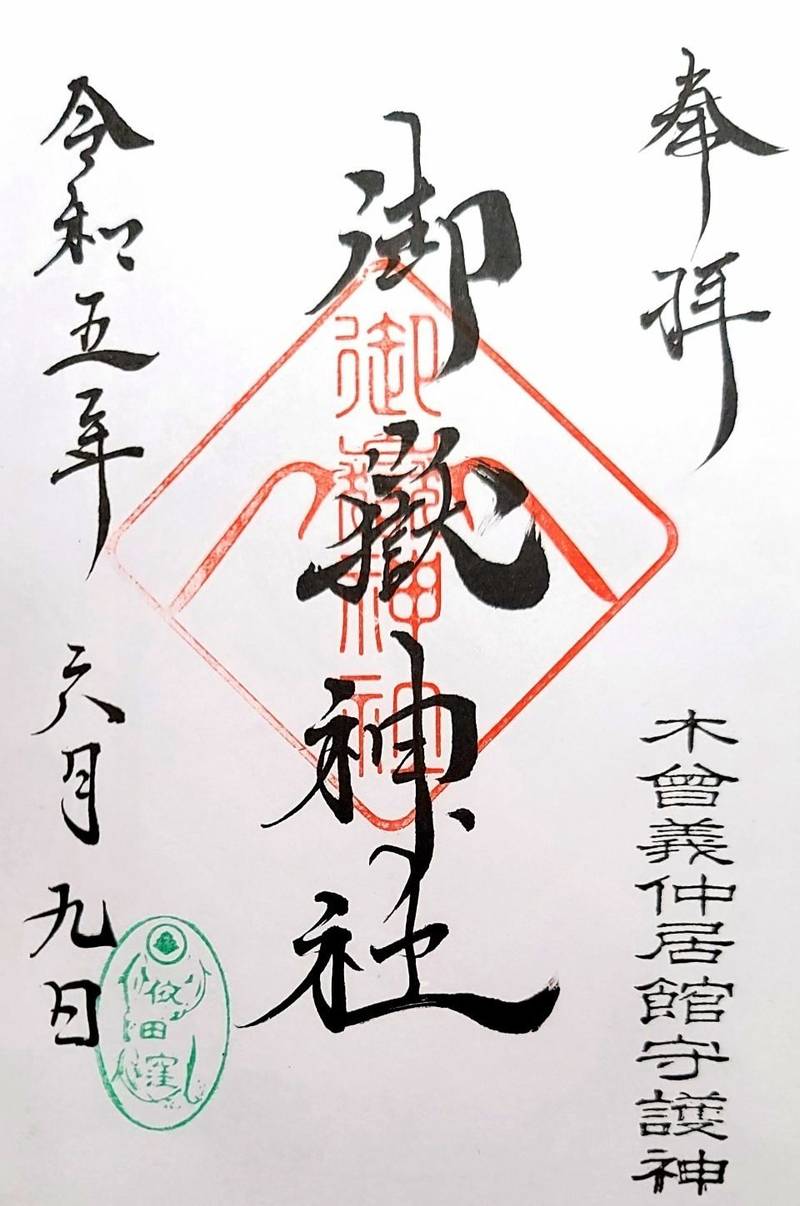 奉拝
木曾義仲居館守護神
御嶽神社
御嶽神社
令和五年 六月 九日
依田窪